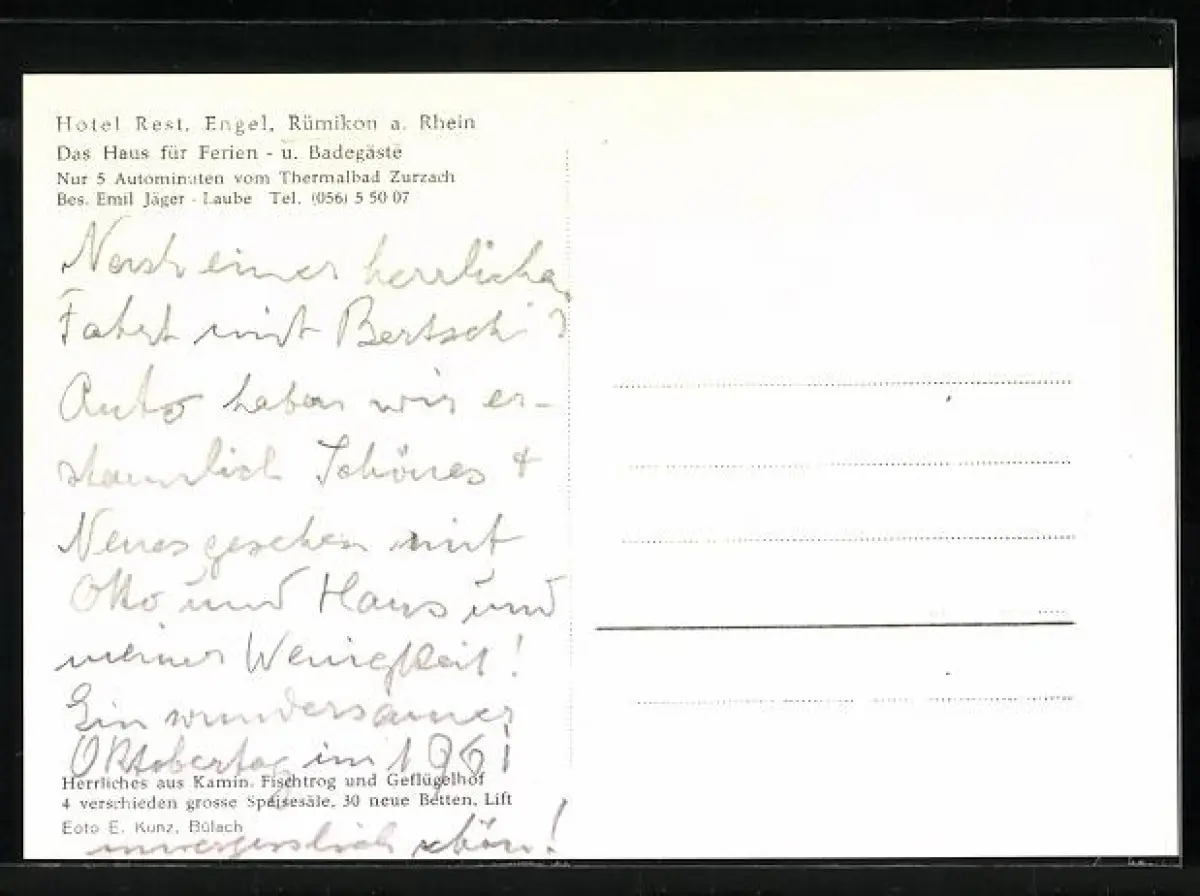 Hotel Rest. Engel, Rümikon a. Rhein
Das Haus für Ferien - u. Badegäste
Nur 5 Autominuten vom Thermalbad Zurzach
Bes. Emil Jäger - Laube Tel. (056) 5 50 07
Nach einer herrlichen
Fahrt mit Bertschi's
Auto haben wir er-
staunlich Schönes +
Neues gesehen mit
Otto und Hans und
meiner Wenigkeit!
Ein wundersamer
Oktobertag im 1961
Herrliches aus Kamin, Fischtrog und Geflügelhof
4 verschieden grosse Speisesäle, 30 neue Betten, Lift
Foto E. Kunz, Bülach
unvergesslich schön!